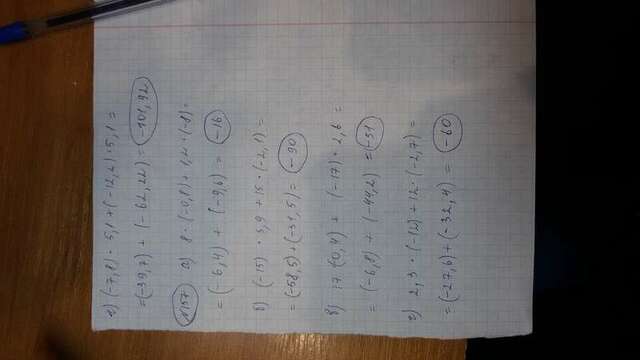 г) (-7,8) · 5,1 + (-12,2) · 5,1 =
= (-39,7) + (-62,22) = -101,92
№157 а) 8 · (-0,8) + 1,2 · (-8) =
= (-6,4) + (-9,6) = -16
б) (-15) · 3,9 + 15 · (-2,1) =
= (-58,5) + (-31,5) = -90
в) 17 · (0,4) + (-17) · 2,6 =
= (-6,8) + (-44,2) = -51
г) 2,3 · (-12) + 12 · (-2,7) =
= (-27,6) + (-32,4) = -60